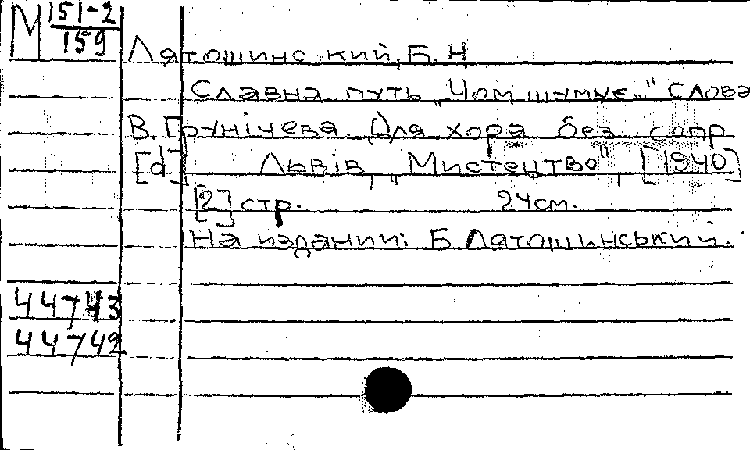 М 151-2
159
Лятошинский, Б. Н.
Славна путь „Чом шумує..." Слова
В. Грунічева. Для хора без сопр.
[d] Львів, „Мистецтво", [1940]
[2] стр. 24см.
На издании: Б. Лятошинський.
44743
44742